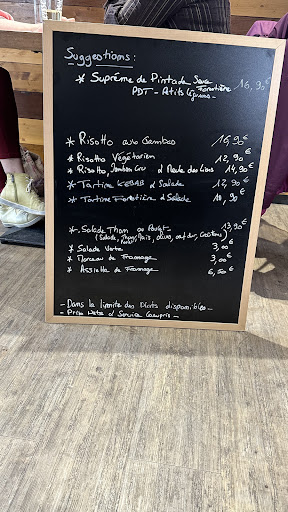 Suggestions :
* Suprême de Pintade Sauce Forestière 16,90€
PDT - Ptits légumes -
* Risotto aux Gambas 16,90€
* Risotto Végétarien 12,90€
* Risotto, Jambon Cru et Meule des Lions 14,90€
* Tartine KEBAB et Salade 12,90€
* Tartine Forestière et Salade 10,90€
* Salade Thon ou Poulet 13,90€
(Salade, Thon/Poulet, Maïs, Olives, oeuf dur, Croûtons)
* Salade Verte 3,00€
* Morceau de Fromage 3,00€
* Assiette de Fromage 6,50€
- Dans la limite des Plats disponibles -
- Prix Nets et Service Compris -